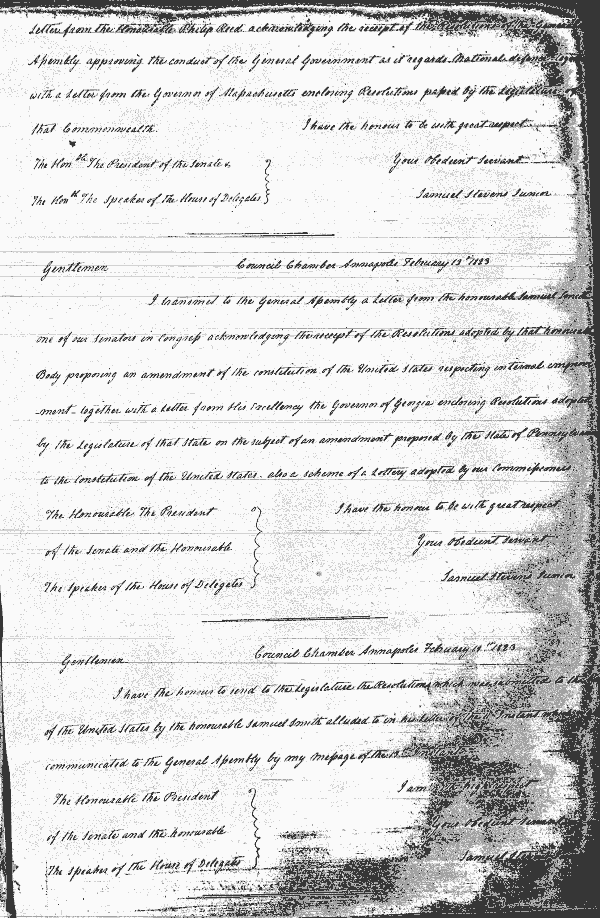 Letter from the Honourable Philip Reed acknowledging the receipt of the Resolutions of the General
Assembly approving the conduct of the General Government as it regards National defence together
with a Letter from the Governor of Massachusetts enclosing Resolutions passed by the Legislature of
that Commonwealth. I have the honour to be with great respect
The Hon.ble The President of the Senate & Your Obedient Servant
The Honble The Speaker of the House of Delegates Samuel Stevens Junior
Gentlemen Council Chamber Annapolis February 13th 1823
I transmit to the General Assembly a Letter from the honourable Samuel Smith
one of our Senators in Congress acknowledging the receipt of the Resolutions adopted by that honourable
Body proposing an amendment of the constitution of the United States respecting internal improve
-ment- together with a Letter from His Excellency the Governor of Georgia enclosing Resolutions adopted
by the Legislature of that State on the subject of an amendment proposed by the State of Pennsylvania
to the Constitution of the United States. also a scheme of a Lottery adopted by our Commissioners
The Honourable The President I have the honour to be with great respect
of the Senate and the Honourable Your Obedient Servant
The Speaker of the House of Delegates Samuel Stevens Junior
Gentlemen Council Chamber Annapolis February 1823
I have the honour to send to the Legislature the Resolutions which was submitted to the
of the United States by the honourable Samuel Smith alluded to in his Letter of the Instant
communicated to the General Assembly by my message of the 13
The Honourable the President I am
of the Senate and the honourable Your Obedient Servant
The Speaker of the House of Delegates Samuel